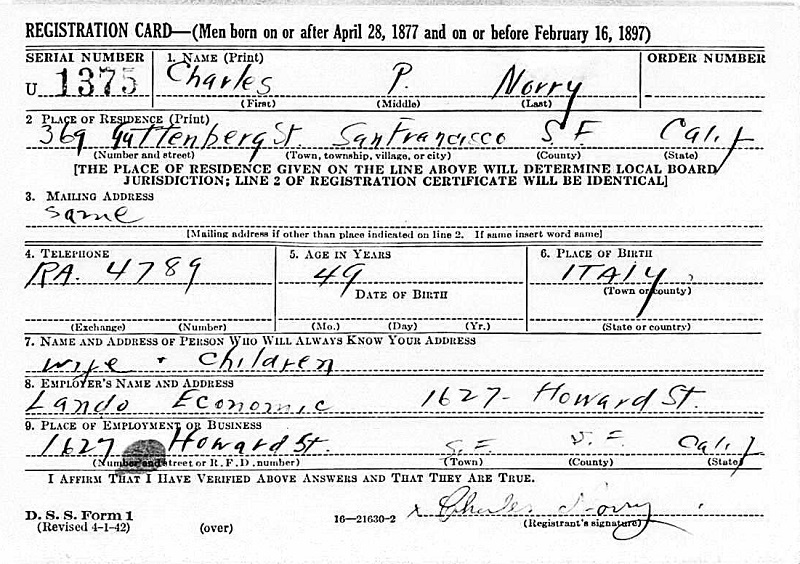 REGISTRATION CARD—(Men born on or after April 28, 1877 and on or before February 16, 1897)
SERIAL NUMBER 1. NAME (Print) ORDER NUMBER
U 1375 Charles P. Norry
(First) (Middle) (Last)
2 PLACE OF RESIDENCE (Print)
369 Guttenberg St. San Francisco S.F. Calif
(Number and street) (Town, township, village, or city) (County) (State)
[THE PLACE OF RESIDENCE GIVEN ON THE LINE ABOVE WILL DETERMINE LOCAL BOARD
JURISDICTION; LINE 2 OF REGISTRATION CERTIFICATE WILL BE IDENTICAL]
3. MAILING ADDRESS
Same
[Mailing address if other than place indicated on line 2. If same insert word same]
4. TELEPHONE 5. AGE IN YEARS 6. PLACE OF BIRTH
RA. 4789 49 ITALY
DATE OF BIRTH (Town or county)
(Exchange) (Number) (Mo.) (Day) (Yr.) (State or country)
7. NAME AND ADDRESS OF PERSON WHO WILL ALWAYS KNOW YOUR ADDRESS
Wife + Children
8. EMPLOYER'S NAME AND ADDRESS
Lando Economic 1627- Howard St.
9. PLACE OF EMPLOYMENT OR BUSINESS
1627 Howard St. S.F. S.F. Calif
(Number and street or R. F. D. number) (Town) (County) (State)
I AFFIRM THAT I HAVE VERIFIED ABOVE ANSWERS AND THAT THEY ARE TRUE.
D. S. S. Form 1
(Revised 4-1-42) (over) 16—21630-2 x Charles Norry
(Registrant's signature)